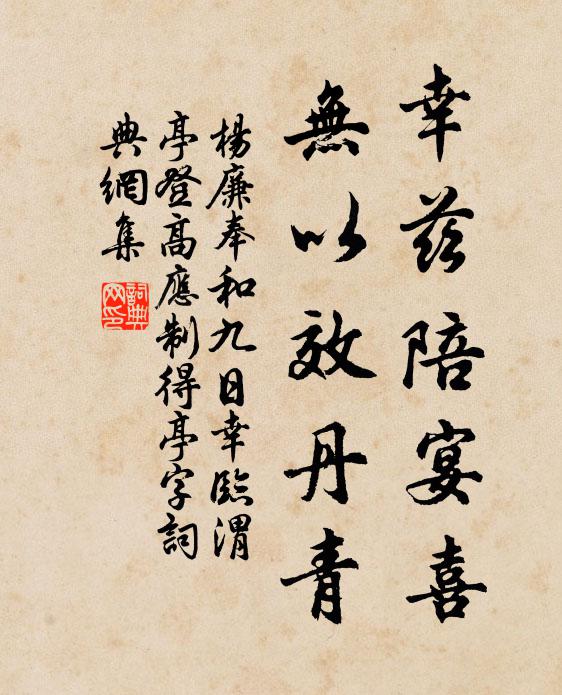 幸茲陪宴喜
無以效丹青
楊廉奉和九日幸臨渭
亭登高應制得亭字詞
典網集
詞典网印